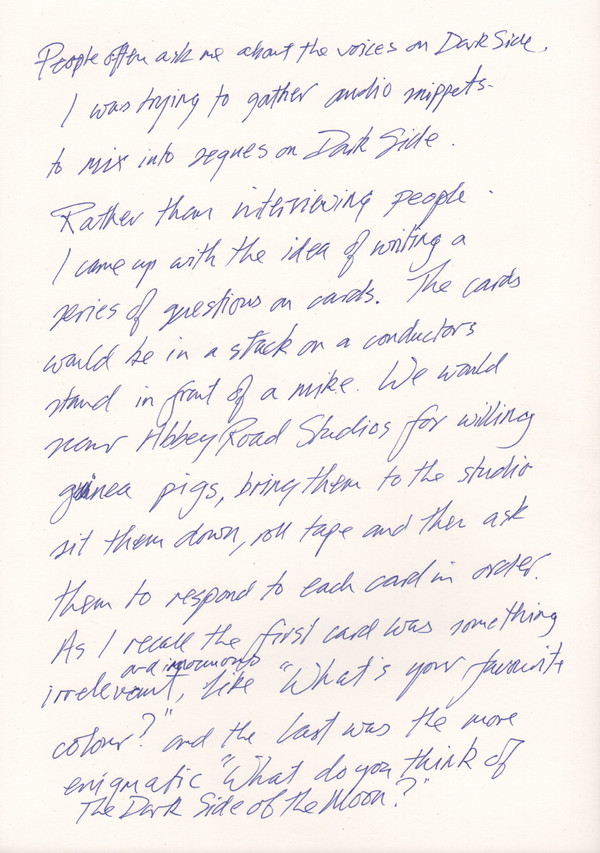 People often ask me about the voices on Dark Side.
I was trying to gather audio snippets
to mix into segues on Dark Side.
Rather than interviewing people.
I came up with the idea of writing a
series of questions on cards. The cards
would be in a stack on a conductors
stand in front of a mike. We would
scour Abbey Road Studios for willing
guinea pigs, bring them to the studio
sit them down, roll tape and then ask
them to respond to each card in order.
As I recall the first card was something
and innocuous
irrelevant, like "What's your favourite
colour?" and the last was the more
enigmatic "What do you think of
The Dark Side of the Moon?"